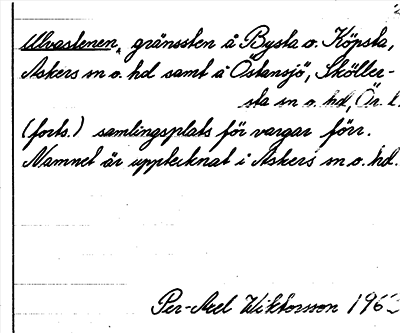 Ulvastenen, gränssten å Bysta o. Köpsta,
Askers sn o. hd samt å Östansjö, Sköller-
sta sn o. hd, Ör. l.
(forts.) samlingsplats för vargar förr.
Namnet är upptecknat i Askers sn o. hd.
Per-Axel Wiktorsson 1963